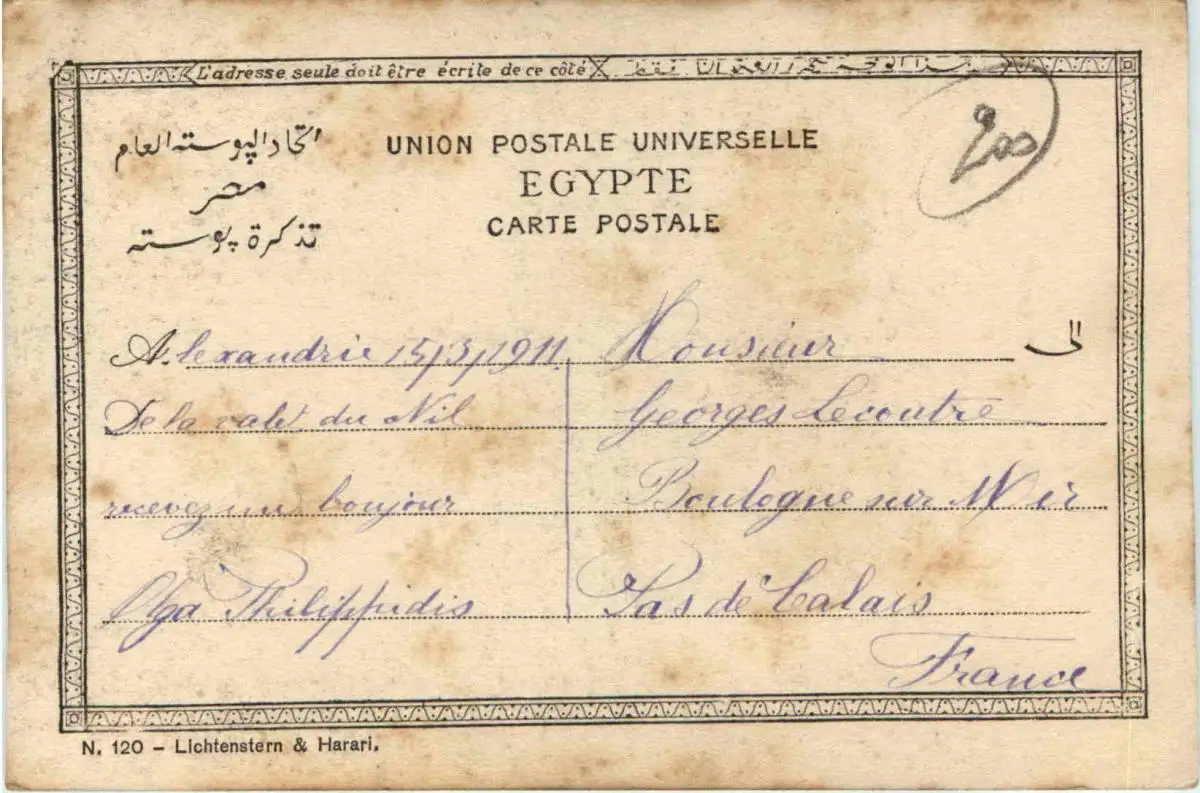 L'adresse seule doit être écrite de ce côté
اتحاد البوسته العام
مصر
تذكرة پوسته
UNION POSTALE UNIVERSELLE
EGYPTE
CARTE POSTALE
200
Alexandrie 15/3/1911
De la valé du Nil
recevez un bonjour
Olga Philippidis
Monsieur
الى
Georges Lecoutre
Boulogne sur Mer
Pas de Calais
France
N. 120 – Lichtenstern & Harari.